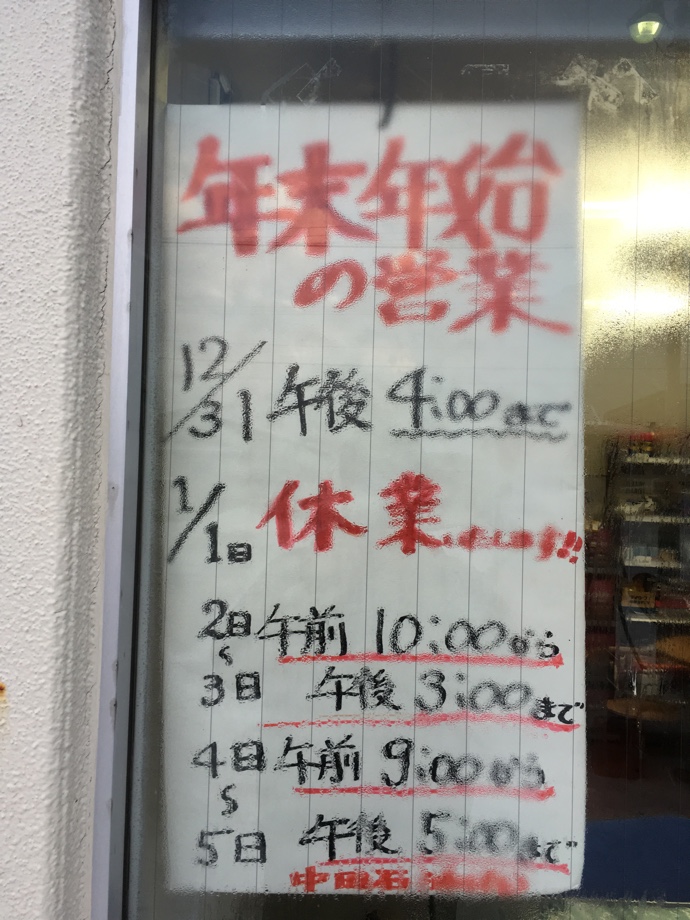 年末年始
の営業
12/31 午後 4:00まで
1/1日 休業いたします!!
2日 午前 10:00から
〜
3日 午後 3:00まで
4日 午前 9:00から
〜
5日 午後 5:00まで
中田石油